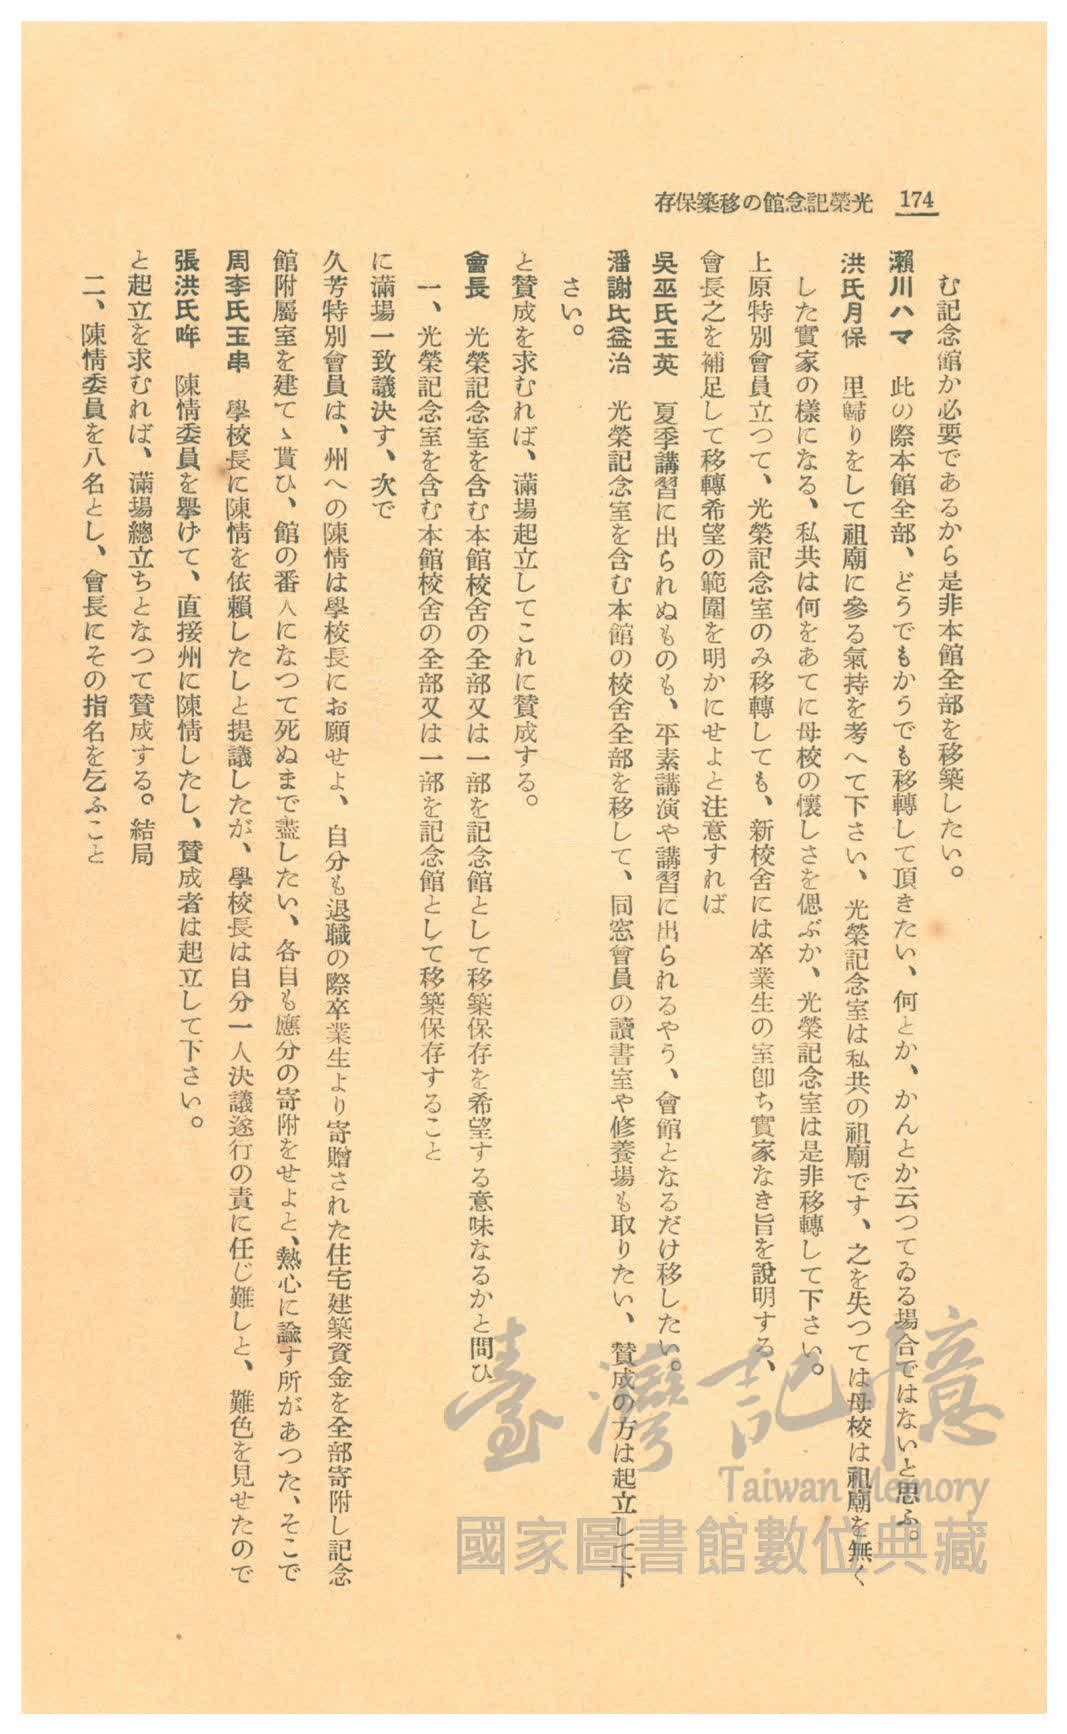 174
光榮記念館の移築保存
む記念館か必要であるから是非本館全部を移築したい。
瀨川ハマ　此の際本館全部、どうでもかうでも移轉して頂きたい、何とか、かんとか云つてゐる場合ではないと思ふ。
洪氏月保　里歸りをして祖廟に參る氣持を考へて下さい、光榮記念室は私共の祖廟です、之を失つては母校は祖廟を無く
した實家の樣になる、私共は何をあてに母校の懷しさを偲ぶか、光榮記念室は是非移轉して下さい。
上原特別會員立つて、光榮記念室のみ移轉しても、新校舍には卒業生の室卽ち實家なき旨を說明する、
會長之を補足して移轉希望の範圍を明かにせよと注意すれば
吳巫氏玉英　夏季講習に出られぬものも、平素講演や講習に出られるやう、會館となるだけ移したい。
潘謝氏益治　光榮記念室を含む本館の校舍全部を移して、同窓會員の讀書室や修養場も取りたい、賛成の方は起立して下
さい。
と賛成を求むれば、滿場起立してこれに賛成する。
會長　光榮記念室を含む本館校舍の全部又は一部を記念館として移築保存を希望する意味なるかと問ひ
一、光榮記念室を含む本館校舍の全部又は一部を記念館として移築保存すること
に滿場一致議決す、次で
久芳特別會員は、州への陳情は學校長にお願せよ、自分も退職の際卒業生より寄贈された住宅建築資金を全部寄附し記念
館附屬室を建てゝ貰ひ、館の番人になつて死ぬまで盡したい、各自も應分の寄附をせよと、熱心に諭す所があつた、そこで
周李氏玉串　學校長に陳情を依賴したしと提議したが、學校長は自分一人決議遂行の責に任じ難しと、難色を見せたので
張洪氏𠵇　陳情委員を擧げて、直接州に陳情したし、賛成者は起立して下さい。
と起立を求むれば、滿場總立ちとなつて賛成する。結局
二、陳情委員を八名とし、會長にその指名を乞ふこと
臺灣記憶
Taiwan Memory
國家圖書館數位典藏